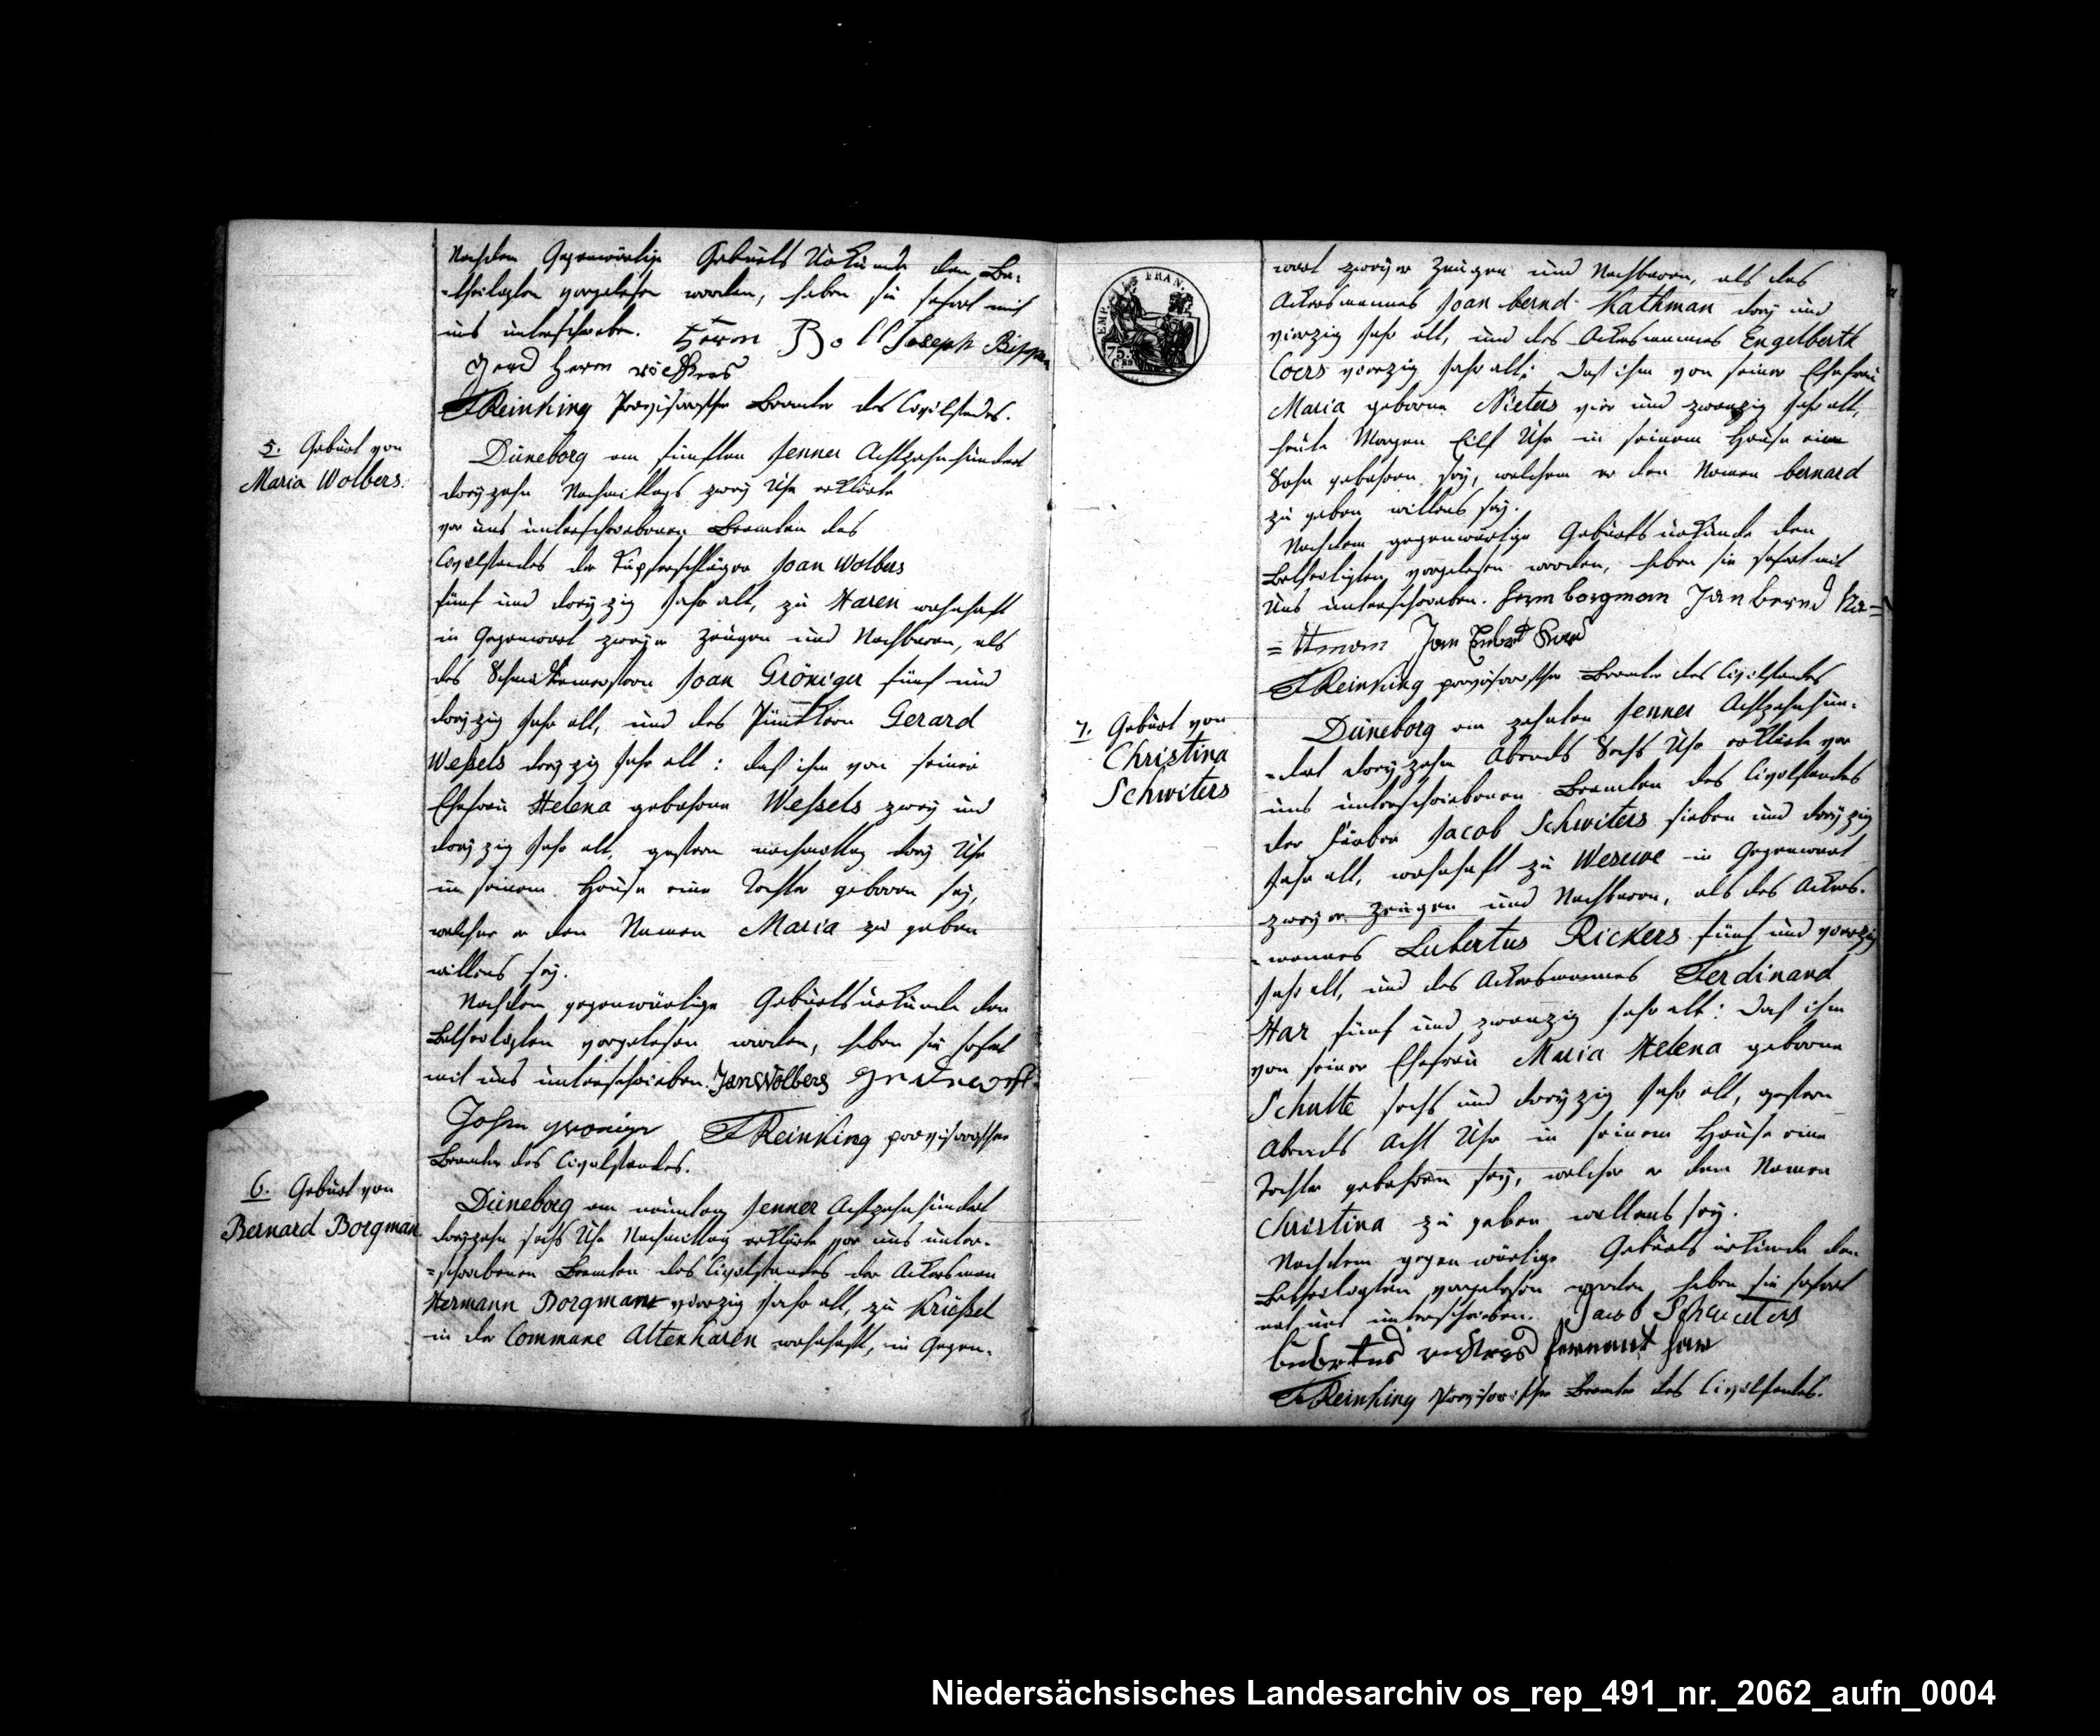 Nachdem Gegenwärtige Geburts Urkunde den Be-
-theiligten vorgelesen worden, haben sie sofort mit
uns unterschrieben. Herm Boll Joseph Bippen
Gerd Herm
F Reinking Provisorischer Beamter des Civilstandes.
5. Geburt von
Maria Wolbers.
Düneborg am fünften Jenner Achtzehnhundert
dreÿzehn Nachmittags zweÿ Uhr erklärte
vor uns unterschriebenen Beamten des
Civilstandes der Kupferschläger Joan Wolbers
fünf und dreÿzig Jahr alt, zu Haren wohnhaft
in Gegenwart zweÿer Zeugen und Nachbaren, als
des Joan Gröniger fünf und
dreÿzig Jahr alt, und des Gerard
Weßels dreÿzig Jahr alt: daß ihm von seiner
Ehefrau Helena gebohrne Weßels zweÿ und
dreÿzig Jahr alt, gestern nachmittag dreÿ Uhr
in seinem Hause eine Tochter geboren seÿ,
welcher er den Namen Maria zu geben
willens seÿ.
Nachdem gegenwärtige Geburtsurkunde den
Betheiligten vorgelesen worden, haben sie sofort
mit uns unterschrieben. Jan Wolbers
Johan groniger F Reinking provisorischer
Beamter des Civilstandes.
6. Geburt von
Bernard Borgman
Düneborg am neunten Jenner Achtzehnhundert
dreÿzehn sechs Uhr Nachmittag erklärte vor uns unter-
=schriebenen Beamten des Civilstandes der Ackersman
Hermann Borgman vierzig Jahr alt, zu Krüßel
in der Commune Altenharen wohnhaft, in Gegen-
EMP. FRAN.
75.
CES
wart zweÿer Zeugen und Nachbaren, als des
Ackersmannes Joan bernd Kathman dreÿ und
vierzig Jahr alt, und des Ackersmannes Engelberth
Coers vierzig Jahr alt; daß ihm von seiner Ehefrau
Maria geborne Nieters vier und zwanzig Jahr alt,
heute Morgen Eilf Uhr in seinem Hause ein
Sohn gebohren seÿ, welchem er den Namen bernard
zu geben willens seÿ.
Nachdem gegenwärtige Geburtsurkunde den
Betheiligten vorgelesen worden, haben sie sofort mit
Uns unterschrieben. herm borgman Jan Bernd Ka=
=ttman Jan
F Reinking provisorischer Beamter des Civilstandes
7. Geburt von
Christina
Schwiters
Düneborg am zehnten Jenner Achtzehnhun-
-dert dreÿzehn Abends Sechs Uhr erklärte vor
uns unterschriebenen Beamten des Civilstandes
der Färber Jacob Schwiters sieben und dreÿzig
Jahr alt, wohnhaft zu Wesuwe in Gegenwart
zweÿer Zeugen und Nachbaren, als des Ackers-
-mannes Lubertus Rickers fünf und vierzig
Jahr alt, und des Ackersmannes Ferdinand
Har fünf und zwanzig Jahr alt: daß ihm
von seiner Ehefrau Maria Helena geborne
Schulte sechs und dreÿzig Jahr alt, gestern
Abends Acht Uhr in seinem Hause eine
Tochter gebohren seÿ, welcher er dem Namen
Christina zu geben willens seÿ.
Nachdem gegenwärtige Geburts urkunde den
Betheiligten vorgelesen worden haben sie sofort
mit uns unterschrieben. Jacob Scheuiters
lubertus har
F Reinking Provisorischer Beamter des Civilstandes.
Niedersächsisches Landesarchiv os_rep_491_nr._2062_aufn_0004